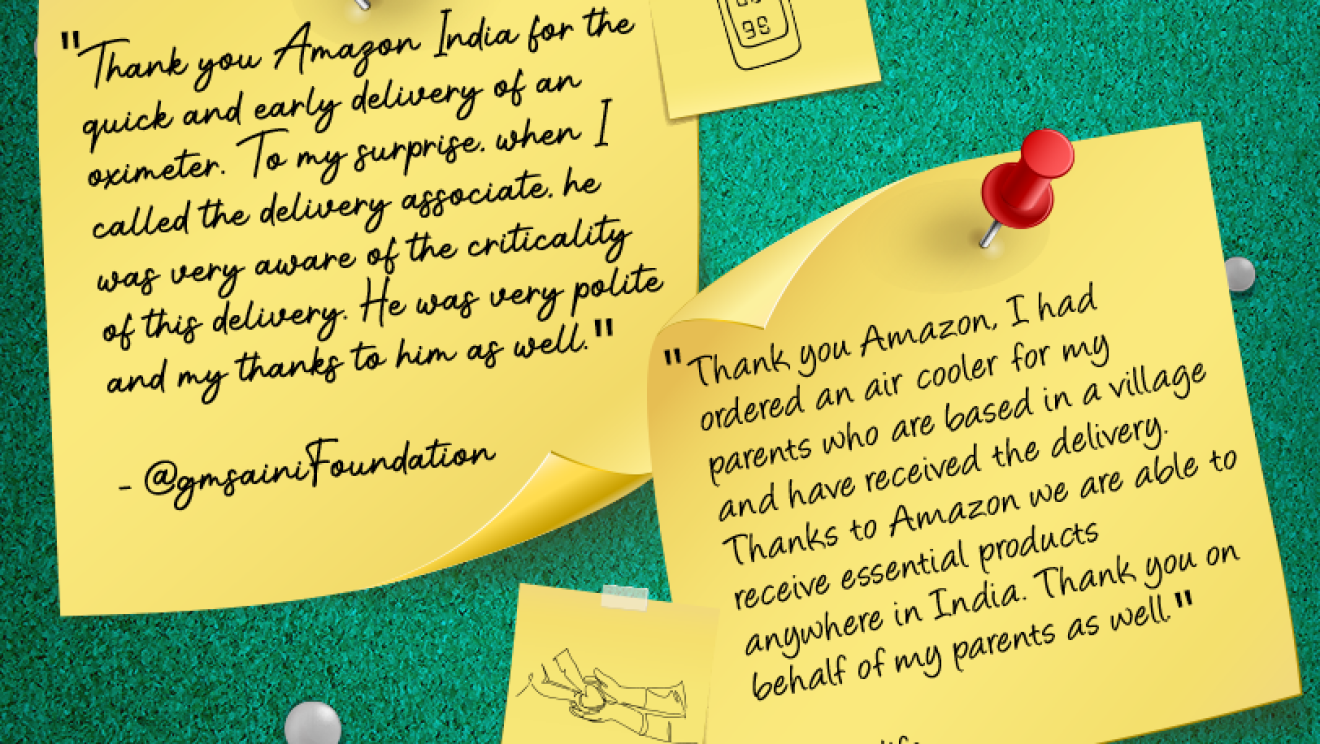 "Thank you Amazon India for the
quick and early delivery of an
oximeter. To my surprise. when I
called the delivery associate. he
was very aware of the criticality
of this delivery. He was very polite
and my thanks to him as well."
- @gmsainiFoundation
98
"Thank you Amazon, I had
ordered an air cooler for my
parents who are based in a village
and have received the delivery.
Thanks to Amazon we are able to
receive essential products
anywhere in India. Thank you on
behalf of my parents as well."